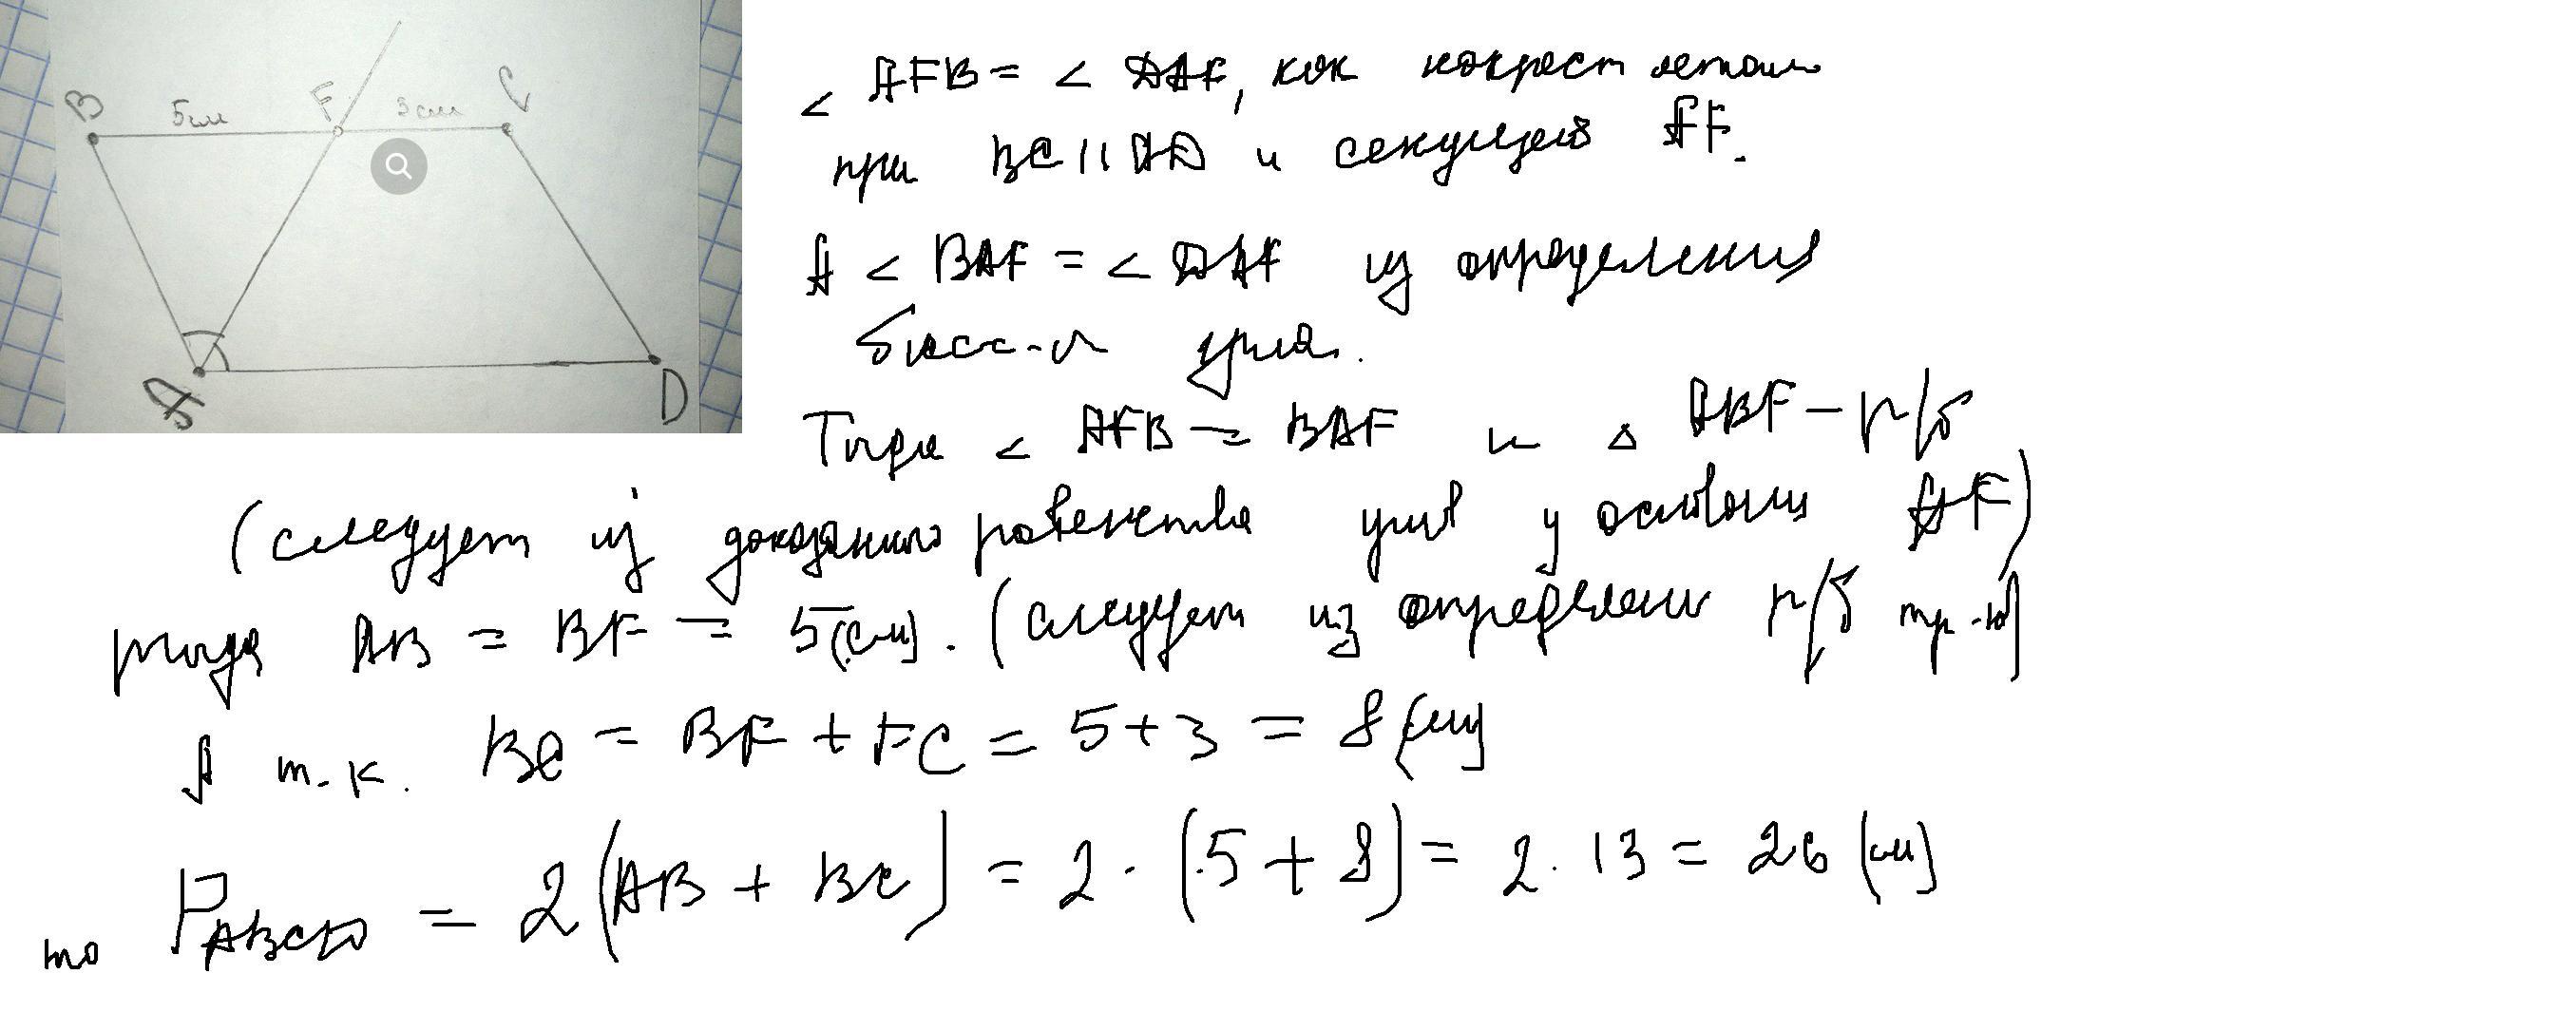 B 5см F 3см C
A D
∠ AFB = ∠ DAF, как накрест лежащие
при BC || AD и секущей AF.
А ∠ BAF = ∠ DAF из определения
бисс-ы угла.
Тогда ∠ AFB = BAF и △ ABF – р/б
(следует из доказанного равенства углов у основания AF)
тогда AB = BF = 5 (см). (следует из определения р/б тр-ка)
А т.к. BC = BF + FC = 5 + 3 = 8 (см)
то P ABCD = 2 (AB + BC) = 2 · (5 + 8) = 2 · 13 = 26 (см)